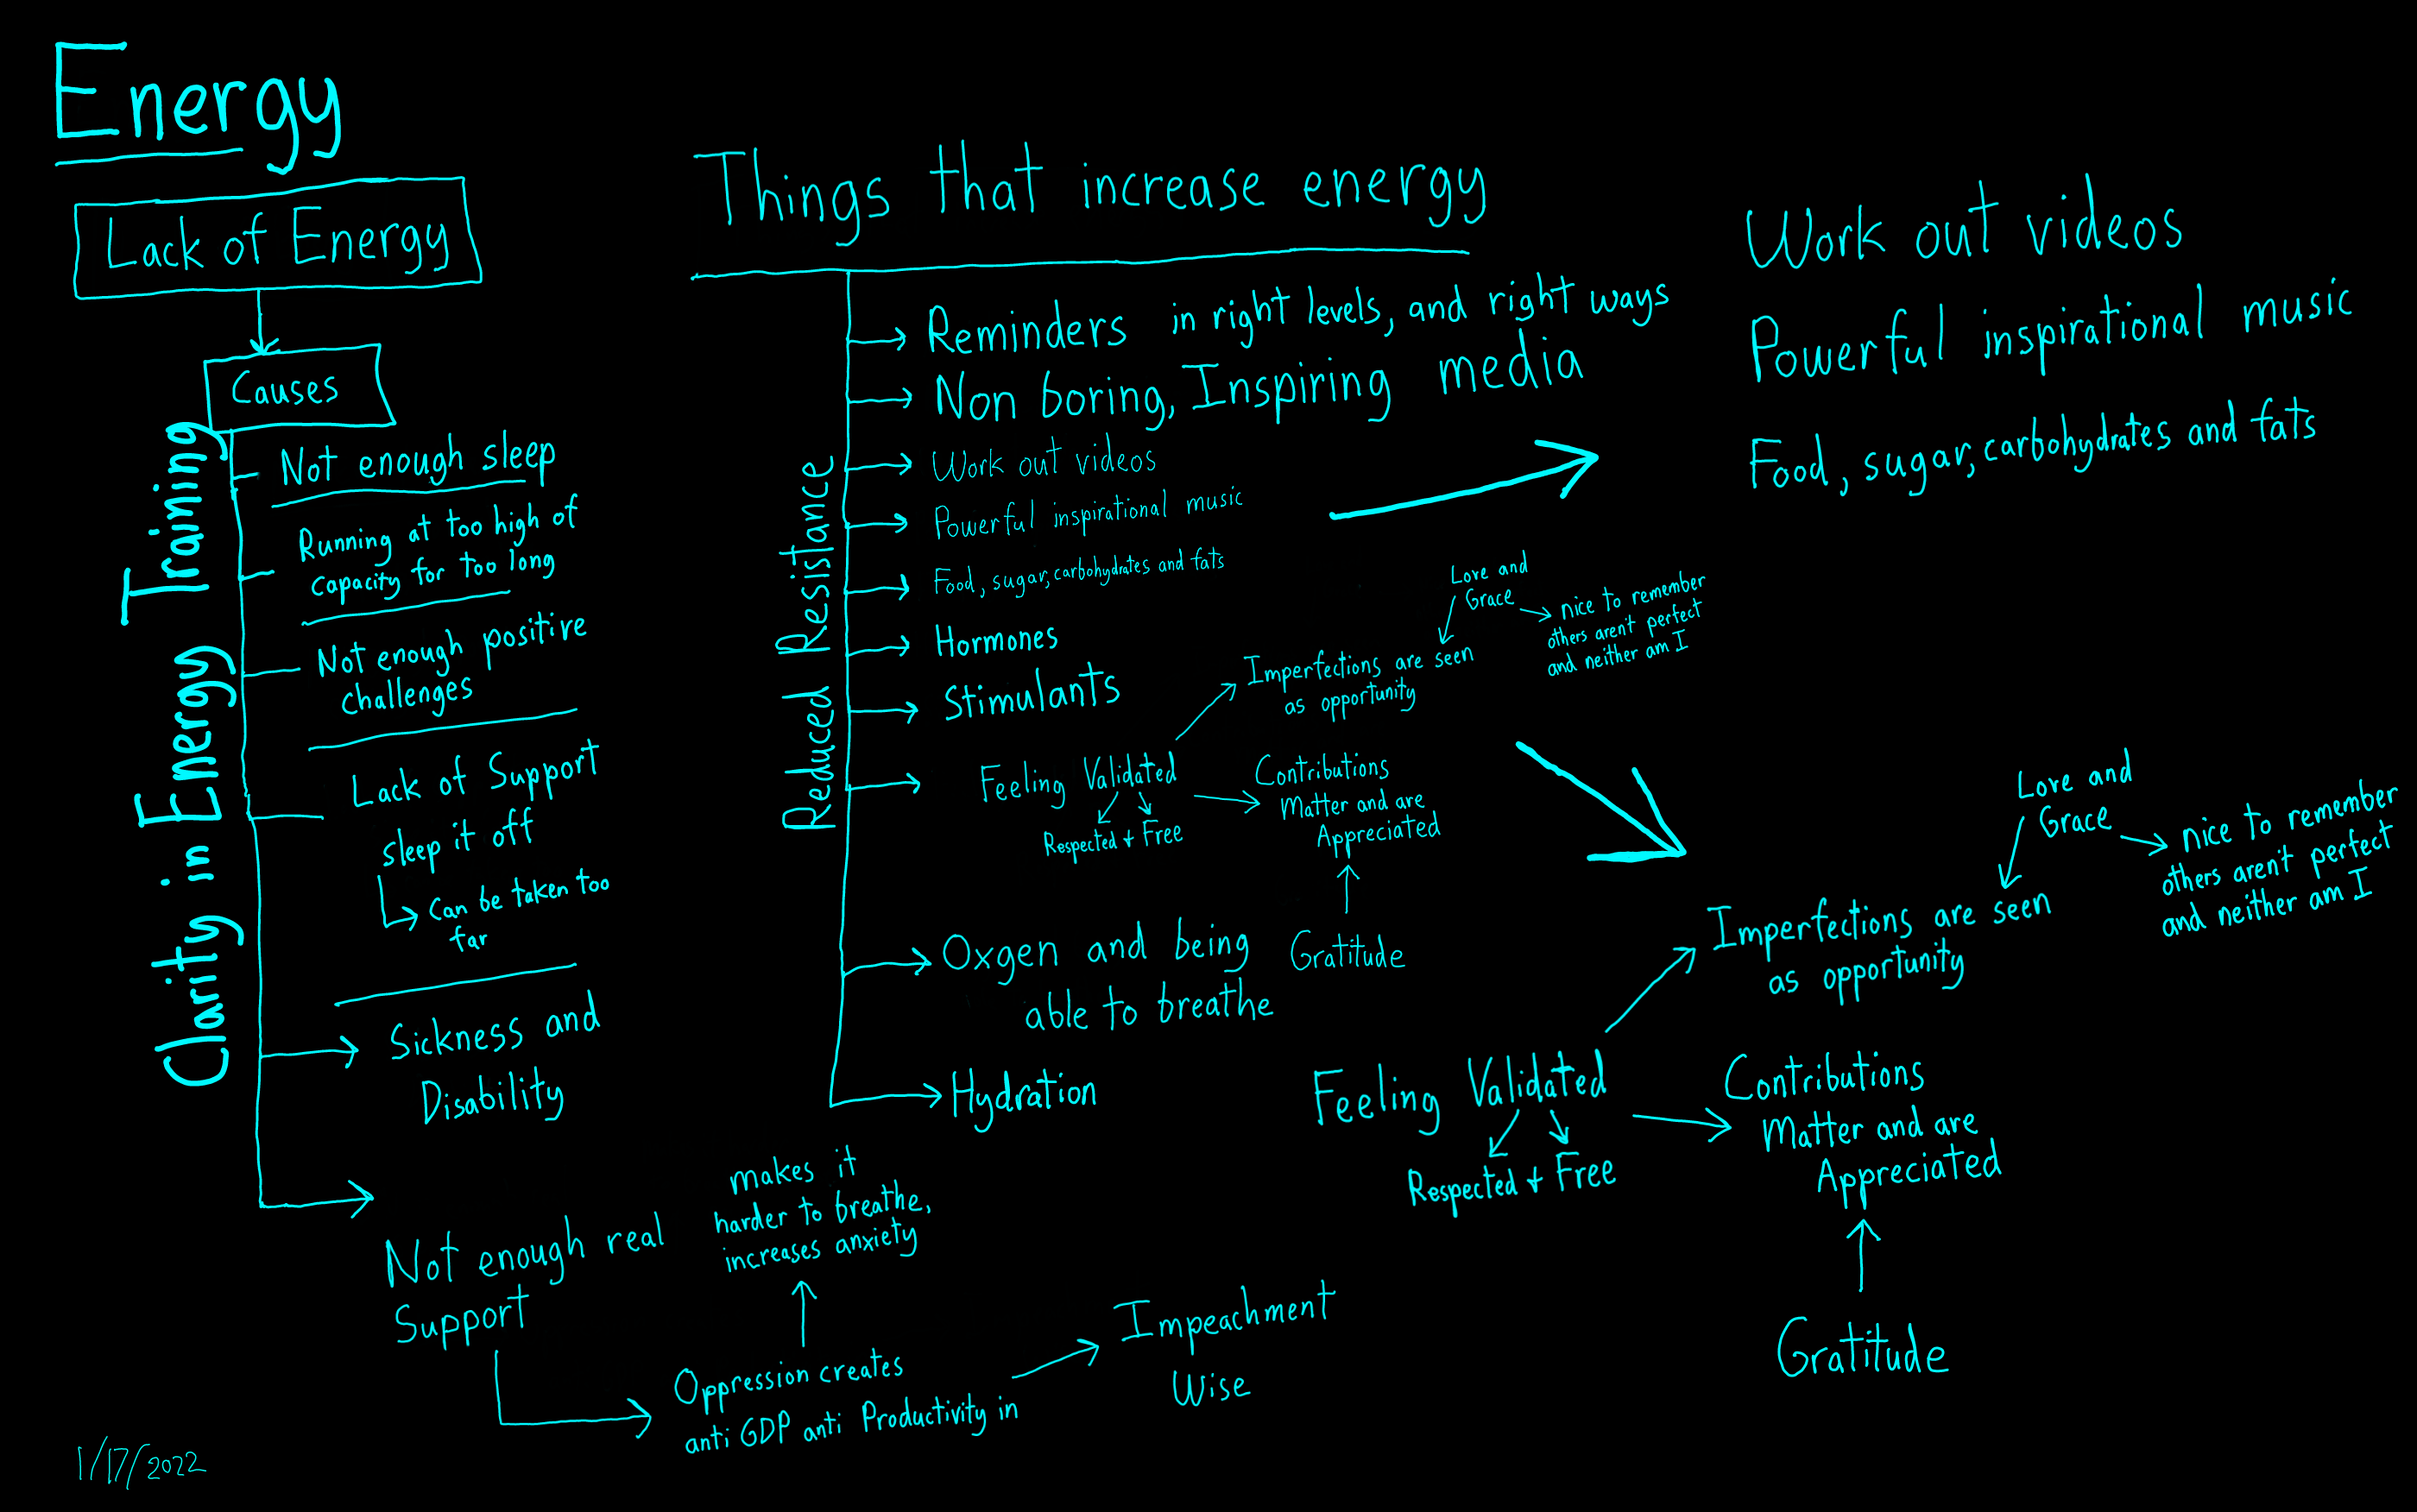 Energy
Lack of Energy
Causes
Clarity in Energy Training
Not enough sleep
Running at too high of
capacity for too long
Not enough positive
challenges
Lack of Support
sleep it off
Can be taken too
far
Sickness and
Disability
Not enough real
Support
Oppression creates
anti GDP anti Productivity in
makes it
harder to breathe,
increases anxiety
Impeachment
Wise
Things that increase energy
Reduced Resistance
Reminders in right levels, and right ways
Non boring, Inspiring media
Work out videos
Powerful inspirational music
Food, sugar, carbohydrates and fats
Hormones
Stimulants
Feeling Validated
Respected + Free
Imperfections are seen
as opportunity
Love and
Grace
nice to remember
others aren't perfect
and neither am I
Contributions
Matter and are
Appreciated
Gratitude
Oxgen and being
able to breathe
Hydration
Work out videos
Powerful inspirational music
Food, sugar, carbohydrates and fats
Love and
Grace
nice to remember
others aren't perfect
and neither am I
Imperfections are seen
as opportunity
Feeling Validated
Respected + Free
Contributions
Matter and are
Appreciated
Gratitude
1/17/2022